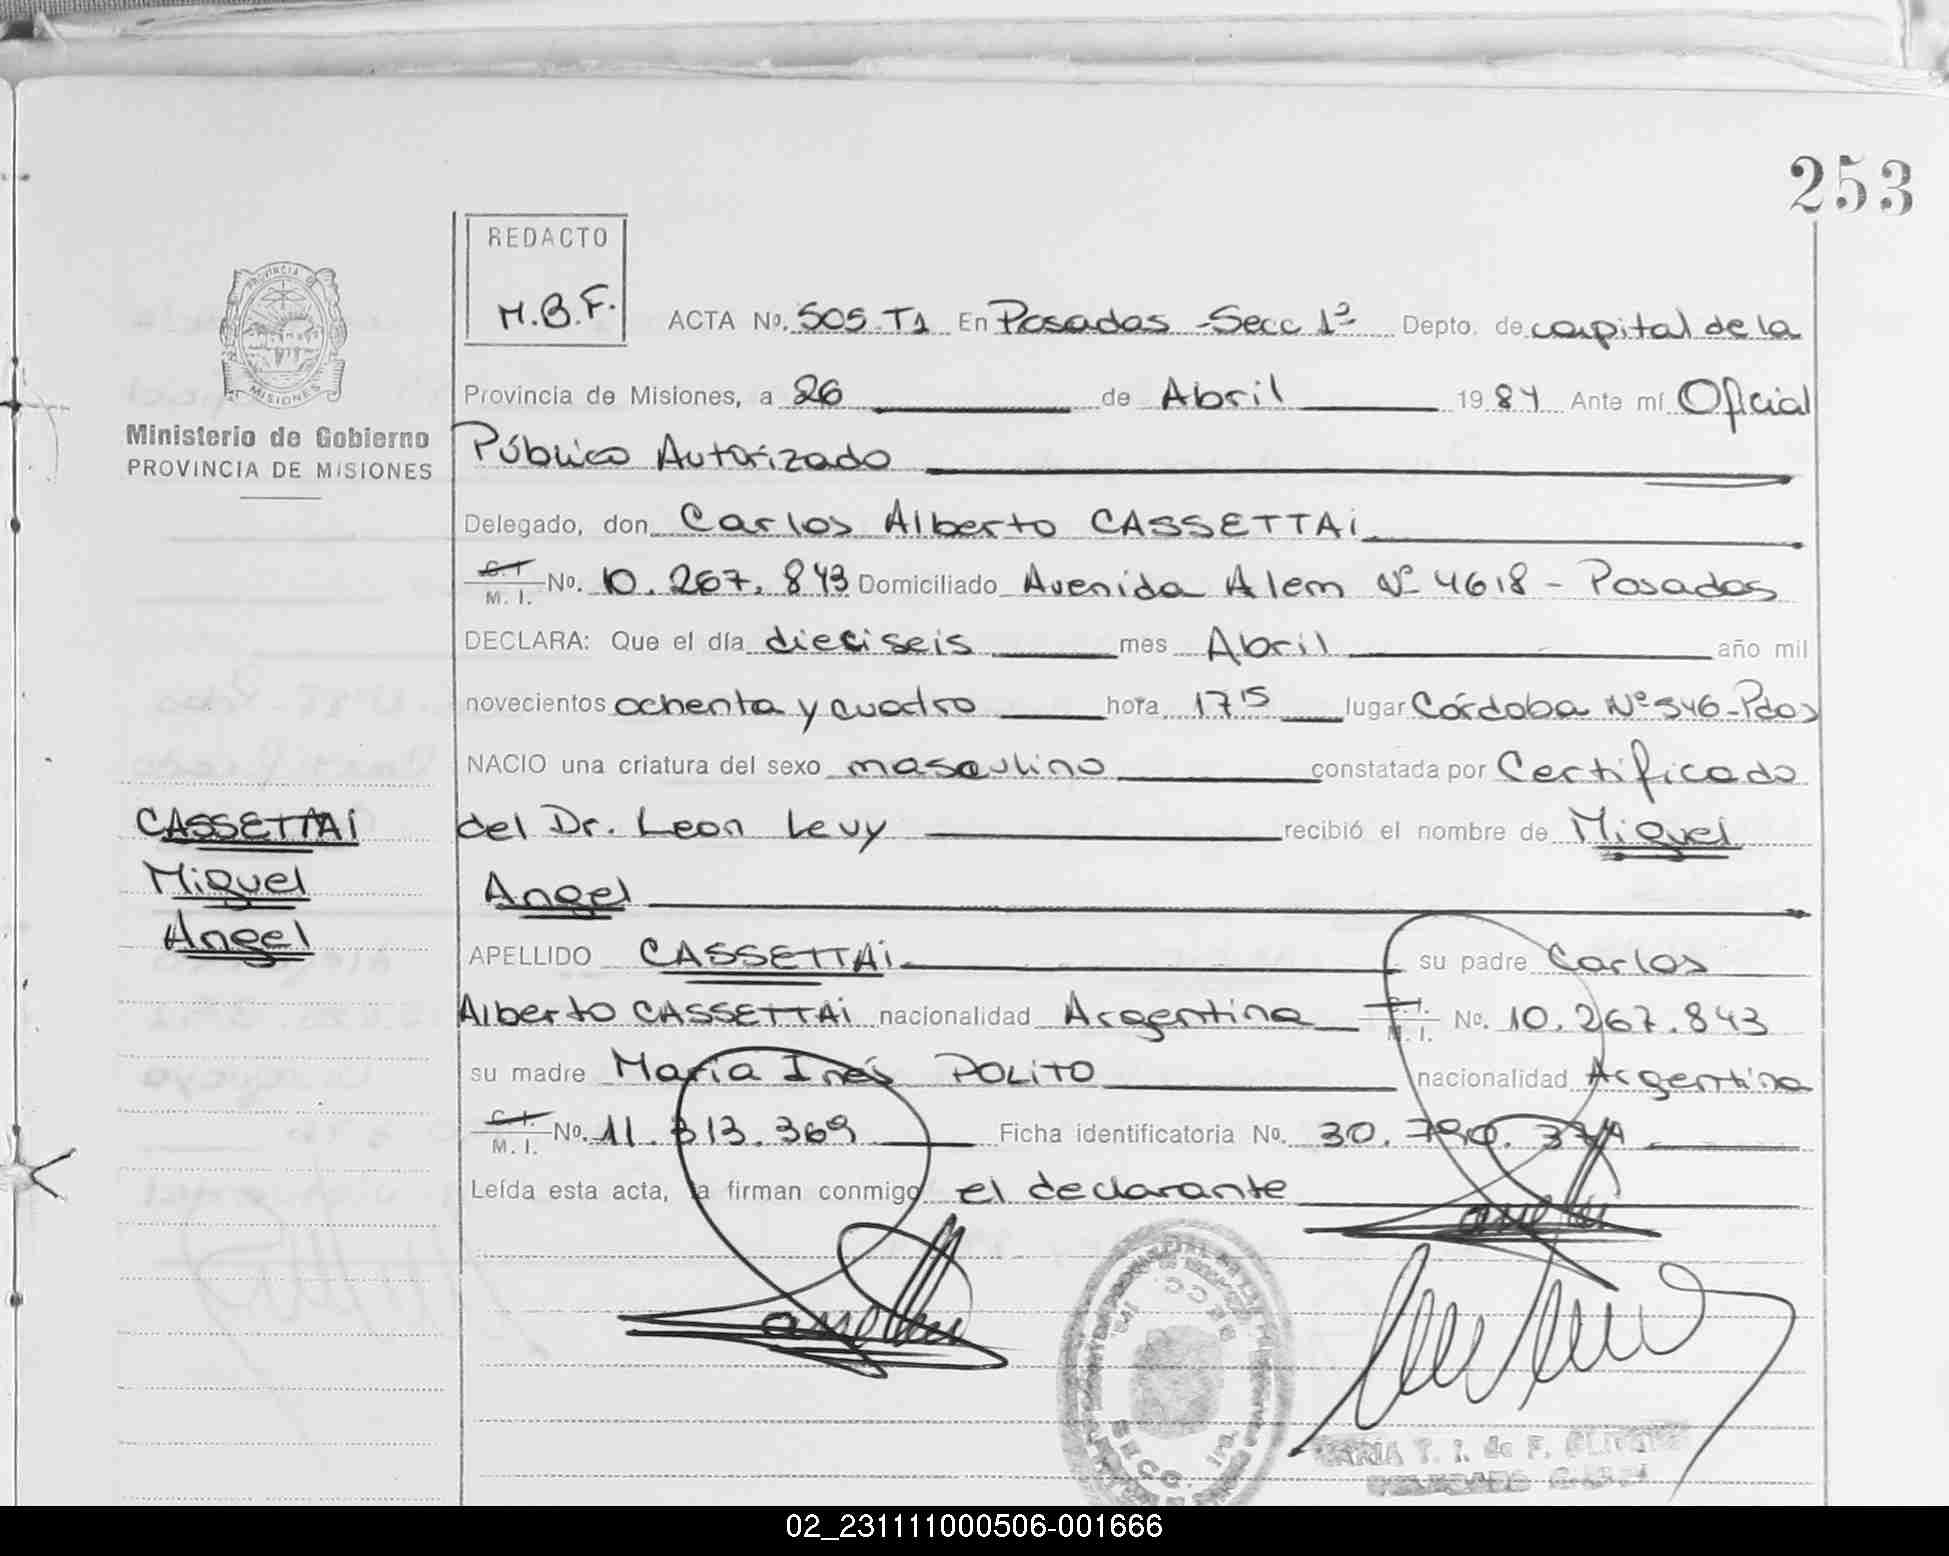 253
REDACTO
M.B.F.
PROVINCIA DE
MISIONES
Ministerio de Gobierno
PROVINCIA DE MISIONES
ACTA No. 505 T1 En Posadas -Secc 1ª Depto. de capital de la
Provincia de Misiones, a 26 de Abril 1984 Ante mí Oficial
Público Autorizado
Delegado, don Carlos Alberto CASSETTAi
C.I. M. I. No. 10.267.843 Domiciliado Avenida Alem Nº 4618 - Posadas
DECLARA: Que el día dieciseis mes Abril año mil
novecientos ochenta y cuatro hora 17 15 lugar Córdoba Nº 546-Pdas
NACIO una criatura del sexo masculino constatada por Certificado
del Dr. Leon Levy recibió el nombre de Miguel
Angel
CASSETTAI
Miguel
Angel
APELLIDO CASSETTAi su padre Carlos
Alberto CASSETTAi nacionalidad Argentina C.I. M. I. No. 10.267.843
su madre María Inés POLITO nacionalidad Argentina
C.I. M. I. No. 11.313.369 Ficha identificatoria No. 30.790.
Leída esta acta, la firman conmigo el declarante
SECC. 1ra.
MARIA T. I. de F.
02_231111000506-001666